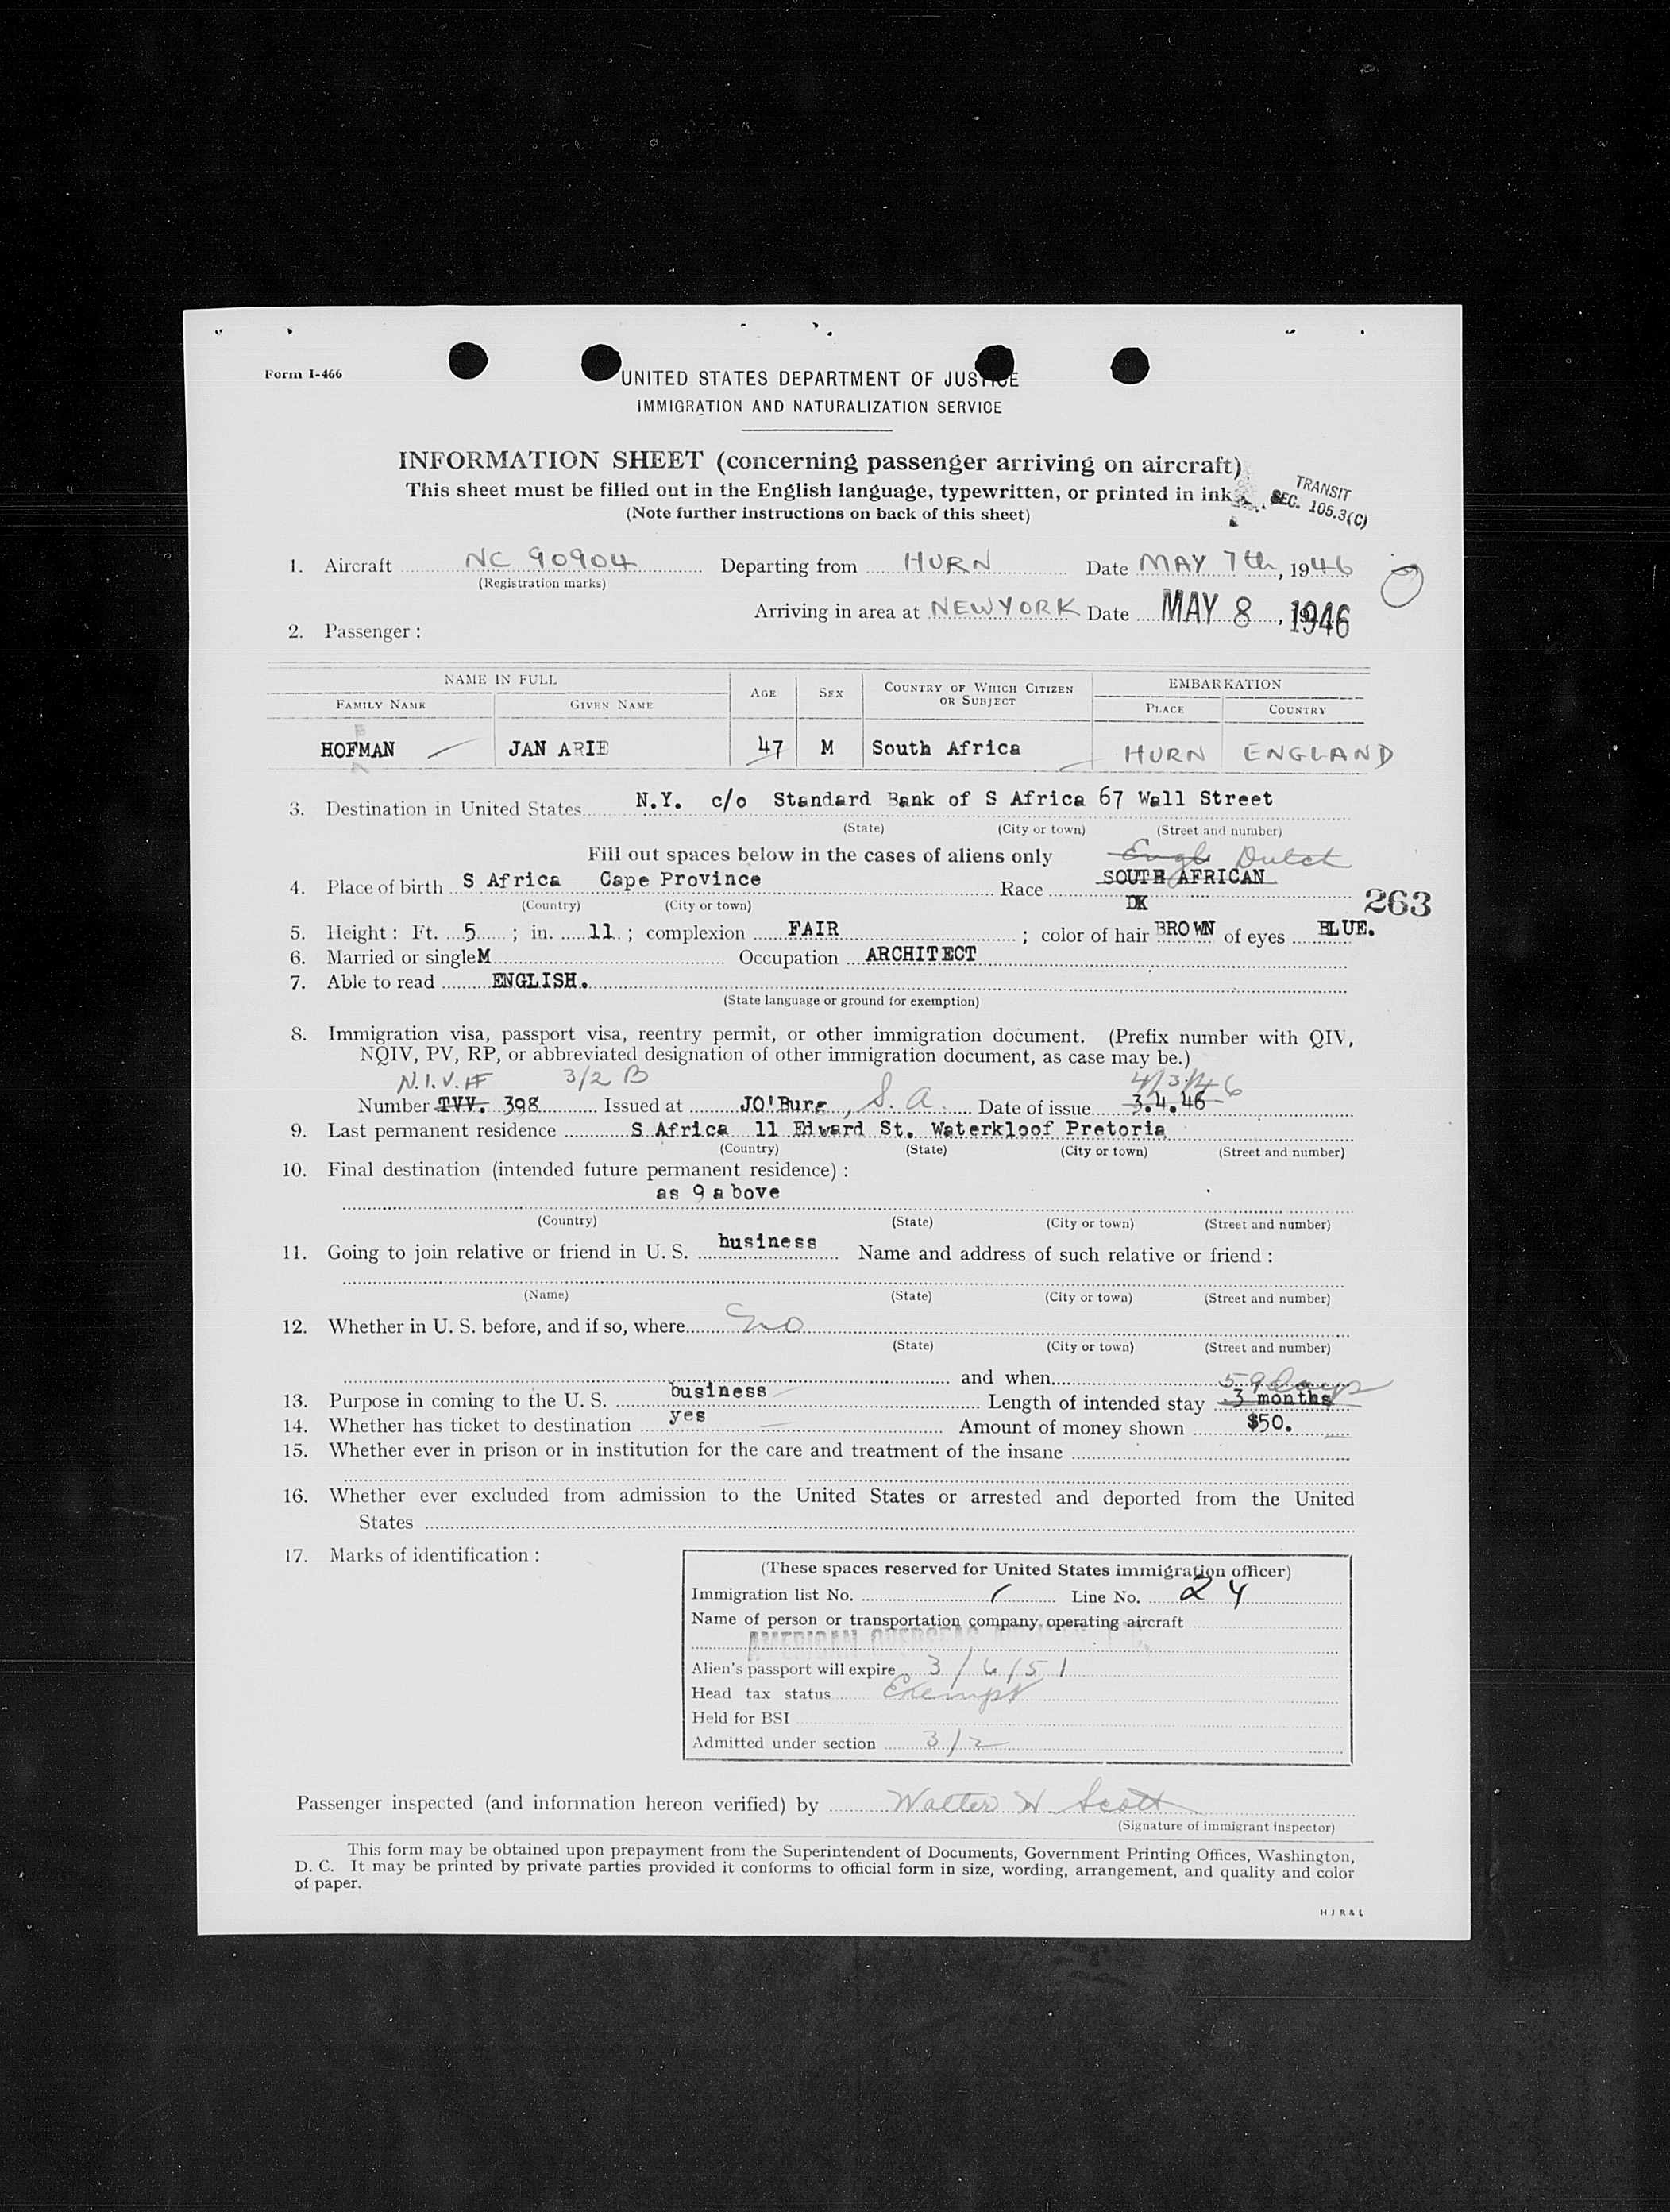 Form I-466
UNITED STATES DEPARTMENT OF JUSTICE
IMMIGRATION AND NATURALIZATION SERVICE
INFORMATION SHEET (concerning passenger arriving on aircraft)
This sheet must be filled out in the English language, typewritten, or printed in ink
TRANSIT
SEC. 105.3(C)
(Note further instructions on back of this sheet)
1. Aircraft NC 90904 Departing from HURN Date MAY 7th, 1946
(Registration marks)
Arriving in area at NEW YORK Date MAY 8, 1946
2. Passenger :
NAME IN FULL AGE SEX COUNTRY OF WHICH CITIZEN OR SUBJECT EMBARKATION
FAMILY NAME GIVEN NAME PLACE COUNTRY
HOFMAN JAN ARIE 47 M South Africa HURN ENGLAND
3. Destination in United States N.Y. c/o Standard Bank of S Africa 67 Wall Street
(State) (City or town) (Street and number)
Fill out spaces below in the cases of aliens only Engl Dutch
4. Place of birth S Africa Cape Province Race SOUTH AFRICAN
(Country) (City or town) DK
263
5. Height : Ft. 5 ; in. 11 ; complexion FAIR ; color of hair BROWN of eyes BLUE.
6. Married or single M Occupation ARCHITECT
7. Able to read ENGLISH.
(State language or ground for exemption)
8. Immigration visa, passport visa, reentry permit, or other immigration document. (Prefix number with QIV,
NQIV, PV, RP, or abbreviated designation of other immigration document, as case may be.)
N.I.V.# 3/2 B 4/3/46
Number TVV. 398 Issued at JO'Burg, S. A. Date of issue 3.4.46
9. Last permanent residence S Africa 11 Edward St. Waterkloof Pretoria
(Country) (State) (City or town) (Street and number)
10. Final destination (intended future permanent residence) :
as 9 above
(Country) (State) (City or town) (Street and number)
11. Going to join relative or friend in U. S. business Name and address of such relative or friend :
(Name) (State) (City or town) (Street and number)
12. Whether in U. S. before, and if so, where no
(State) (City or town) (Street and number)
and when
59 days
13. Purpose in coming to the U. S. business Length of intended stay 3 months
14. Whether has ticket to destination yes Amount of money shown $50.
15. Whether ever in prison or in institution for the care and treatment of the insane
16. Whether ever excluded from admission to the United States or arrested and deported from the United
States
17. Marks of identification :
(These spaces reserved for United States immigration officer)
Immigration list No. 1 Line No. 24
Name of person or transportation company operating aircraft
AMERICAN OVERSEAS
Alien's passport will expire 3/6/51
Head tax status Exempt
Held for BSI
Admitted under section 3/2
Passenger inspected (and information hereon verified) by Walter W. Scott
(Signature of immigrant inspector)
This form may be obtained upon prepayment from the Superintendent of Documents, Government Printing Offices, Washington,
D. C. It may be printed by private parties provided it conforms to official form in size, wording, arrangement, and quality and color
of paper.
H J R & L